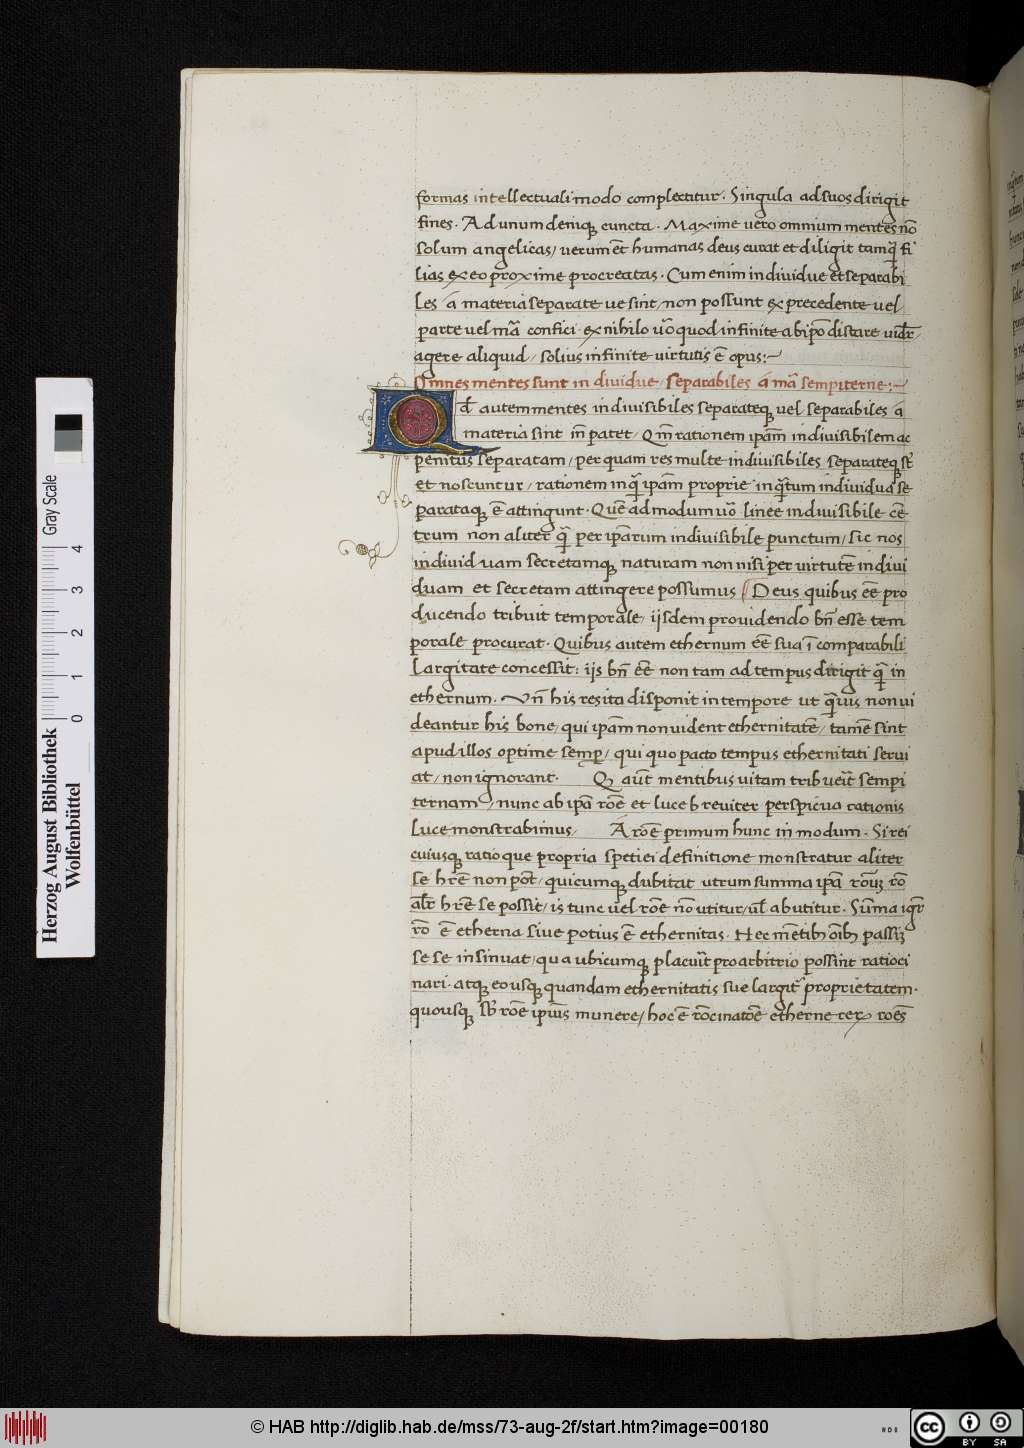 formas intellectuali modo complectitur. Singula ad suos dirigit
fines. Ad unum deniq; cuncta. Maxime vero omnium mentes nō
solum angelicas/ verum ēt humanas deus curat et diligit tamq̄ fi
lias ex eo proxime procreatas. Cum enim individue et separabi
les a materia separate ve sint/ non possunt ex precedente vel
parte vel mā confici. ex nihilo ũo quod infinite ab ipõ distare vider̄
agere aliquid/ solius infinite virtutis ē opus:~
Omnes mentes sunt individue/ separabiles a mā sempiterne:~
Q
d autem mentes indivisibiles separateq; vel separabiles a
materia sint in̄ patet/ Qm̄ rationem ipām indivisibilem ac
penitus separatam/ per quam res multe indivisibiles separateq; st̄
et noscuntur/ rationem inq̄ ipām proprie inq̄tum individua se
parataq; ē attingunt. Quē ad modum ũo linee indivisibile cē
trum non aliter q̄ per ipārum indivisibile punctum/ sic nos
individuam secretamq; naturam non nisi per virtutē indivi
duam et secretam attingere possumus Deus quibus eē pro
ducendo tribuit temporale/ iisdem providendo bn̄ esse tem
porale procurat. Quibus autem ethernum eē sua ī comparabili
largitate concessit: iis bn̄ eē non tam ad tempus dirigit q̄ in
ethernum. Vn̄ his res ita disponit in tempore ut q̄vis non vi
deantur his bone/ qui ipām non vident ethernitatē/ tamē sint
apud illos optime semp̄/ qui quo pacto tempus ethernitati servi
at/ non ignorant. Q aūt mentibus vitam tribuerit sempi
ternam/ nunc ab ipā roē et luce breviter perspicua rationis
luce monstrabimus/ A roē primum hunc in modum. Si rei
cuiusq; ratio que propria spetiei definitione monstratur aliter
se hrē non pōt/ quicumq; dubitat utrum summa ipā ro
alr̄ hrē se possit/ is tunc vel roē nō utitur/ ul̄ abutitur. Sūma igr̄
rō ē etherna sive potius ē ethernitas. Hec mētib; oib; passi
sese insinuat/ qua ubicumq; placuīt pro arbitrio possint ratioci
nari. atq; eousq; quandam ethernitatis sue largit̄ proprietatem.
quousq; sb̄ roē ipīus munere/ hoc ē rōcinatoē etherne rex roēs
Herzog August Bibliothek
Wolfenbüttel
Gray Scale
0 1 2 3 4
© HAB http://diglib.hab.de/mss/73-aug-2f/start.htm?image=00180
cc BY SA